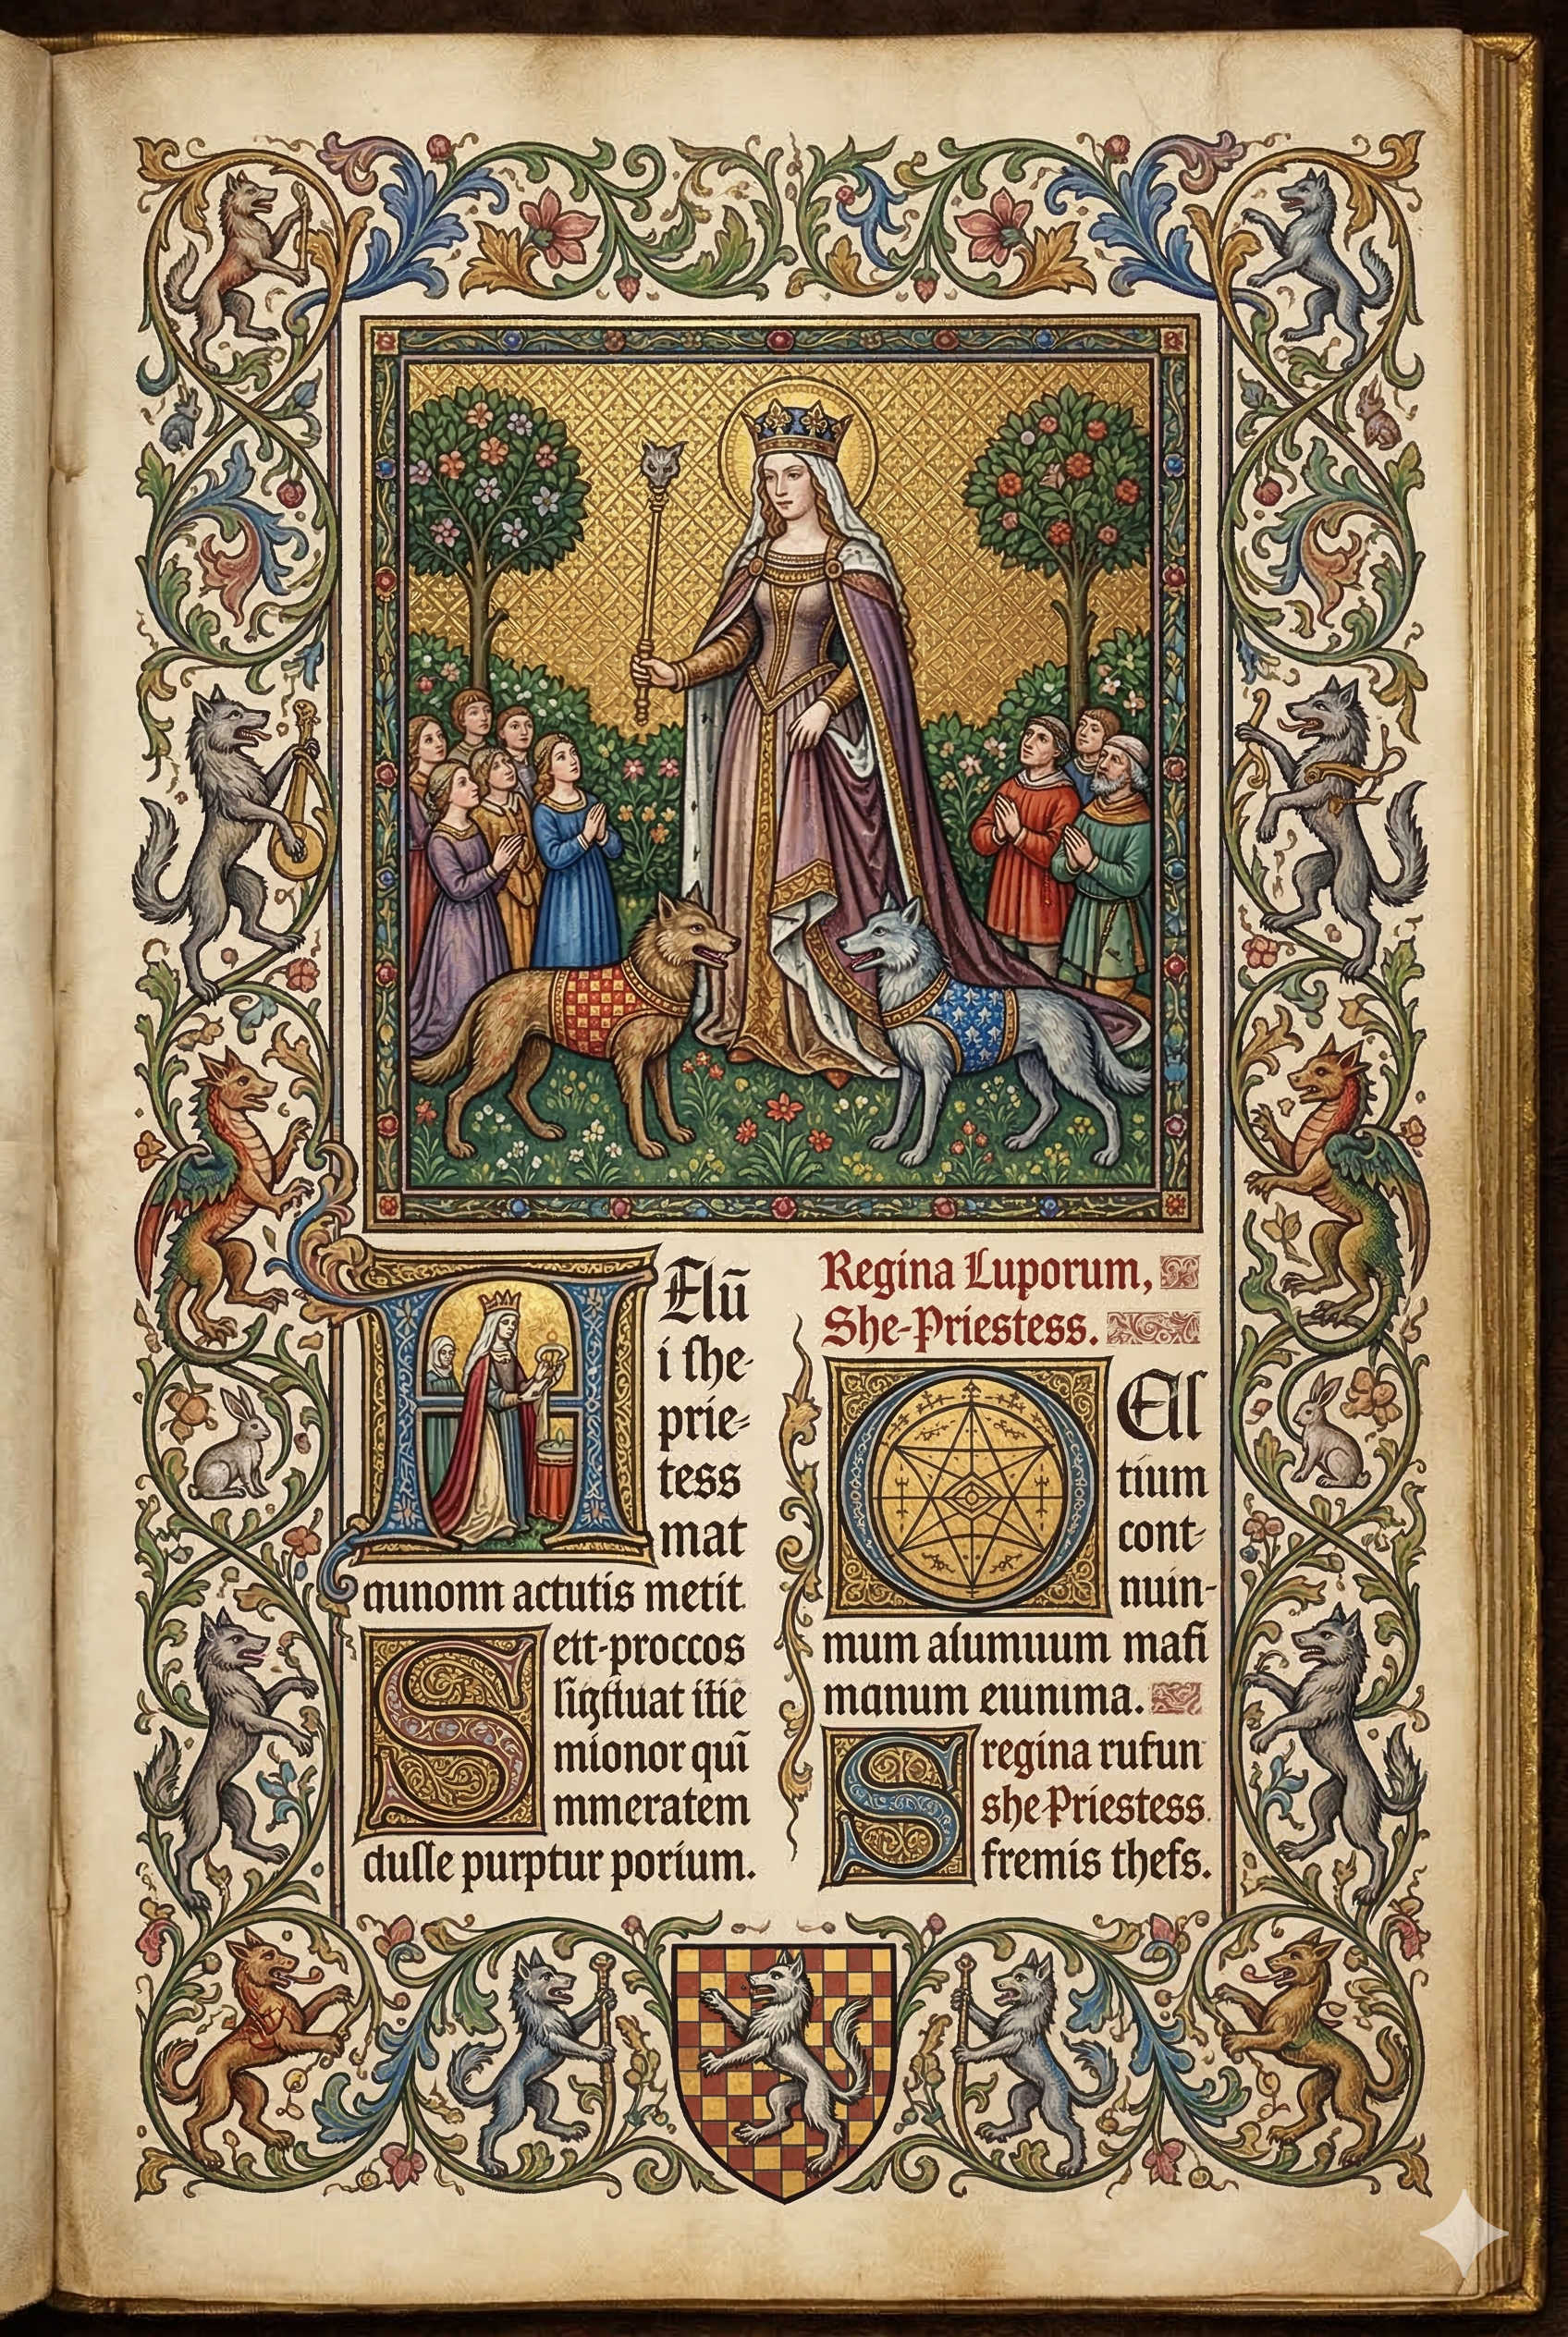 Elū
i ſhe-
prie-
tess
mat
aunonn actutis metit
ett-proccos
ſigtiuat itie
mionor quī
mmeratem
duſſe purptur porium.
Regina Luporum,
She-Priestess.
Al
tium
cont-
nuin-
mum aſumuum mafi
manum eiunima.
regina rufun
she-Priestess.
fremis thefs.